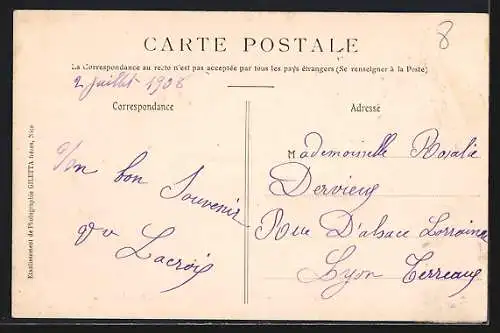 8
CARTE POSTALE
La Correspondance au recto n'est pas acceptée par tous les pays étrangers (Se renseigner à la Poste)
2 juillet 1908
Correspondance
Un bon
Souvenir
Lacroix
Adresse
Mademoiselle Rosalie
Dervieux
Rue D'alsace Lorraine
Lyon Terreaux
Etablissement de Photographie GILETTA frères, Nice